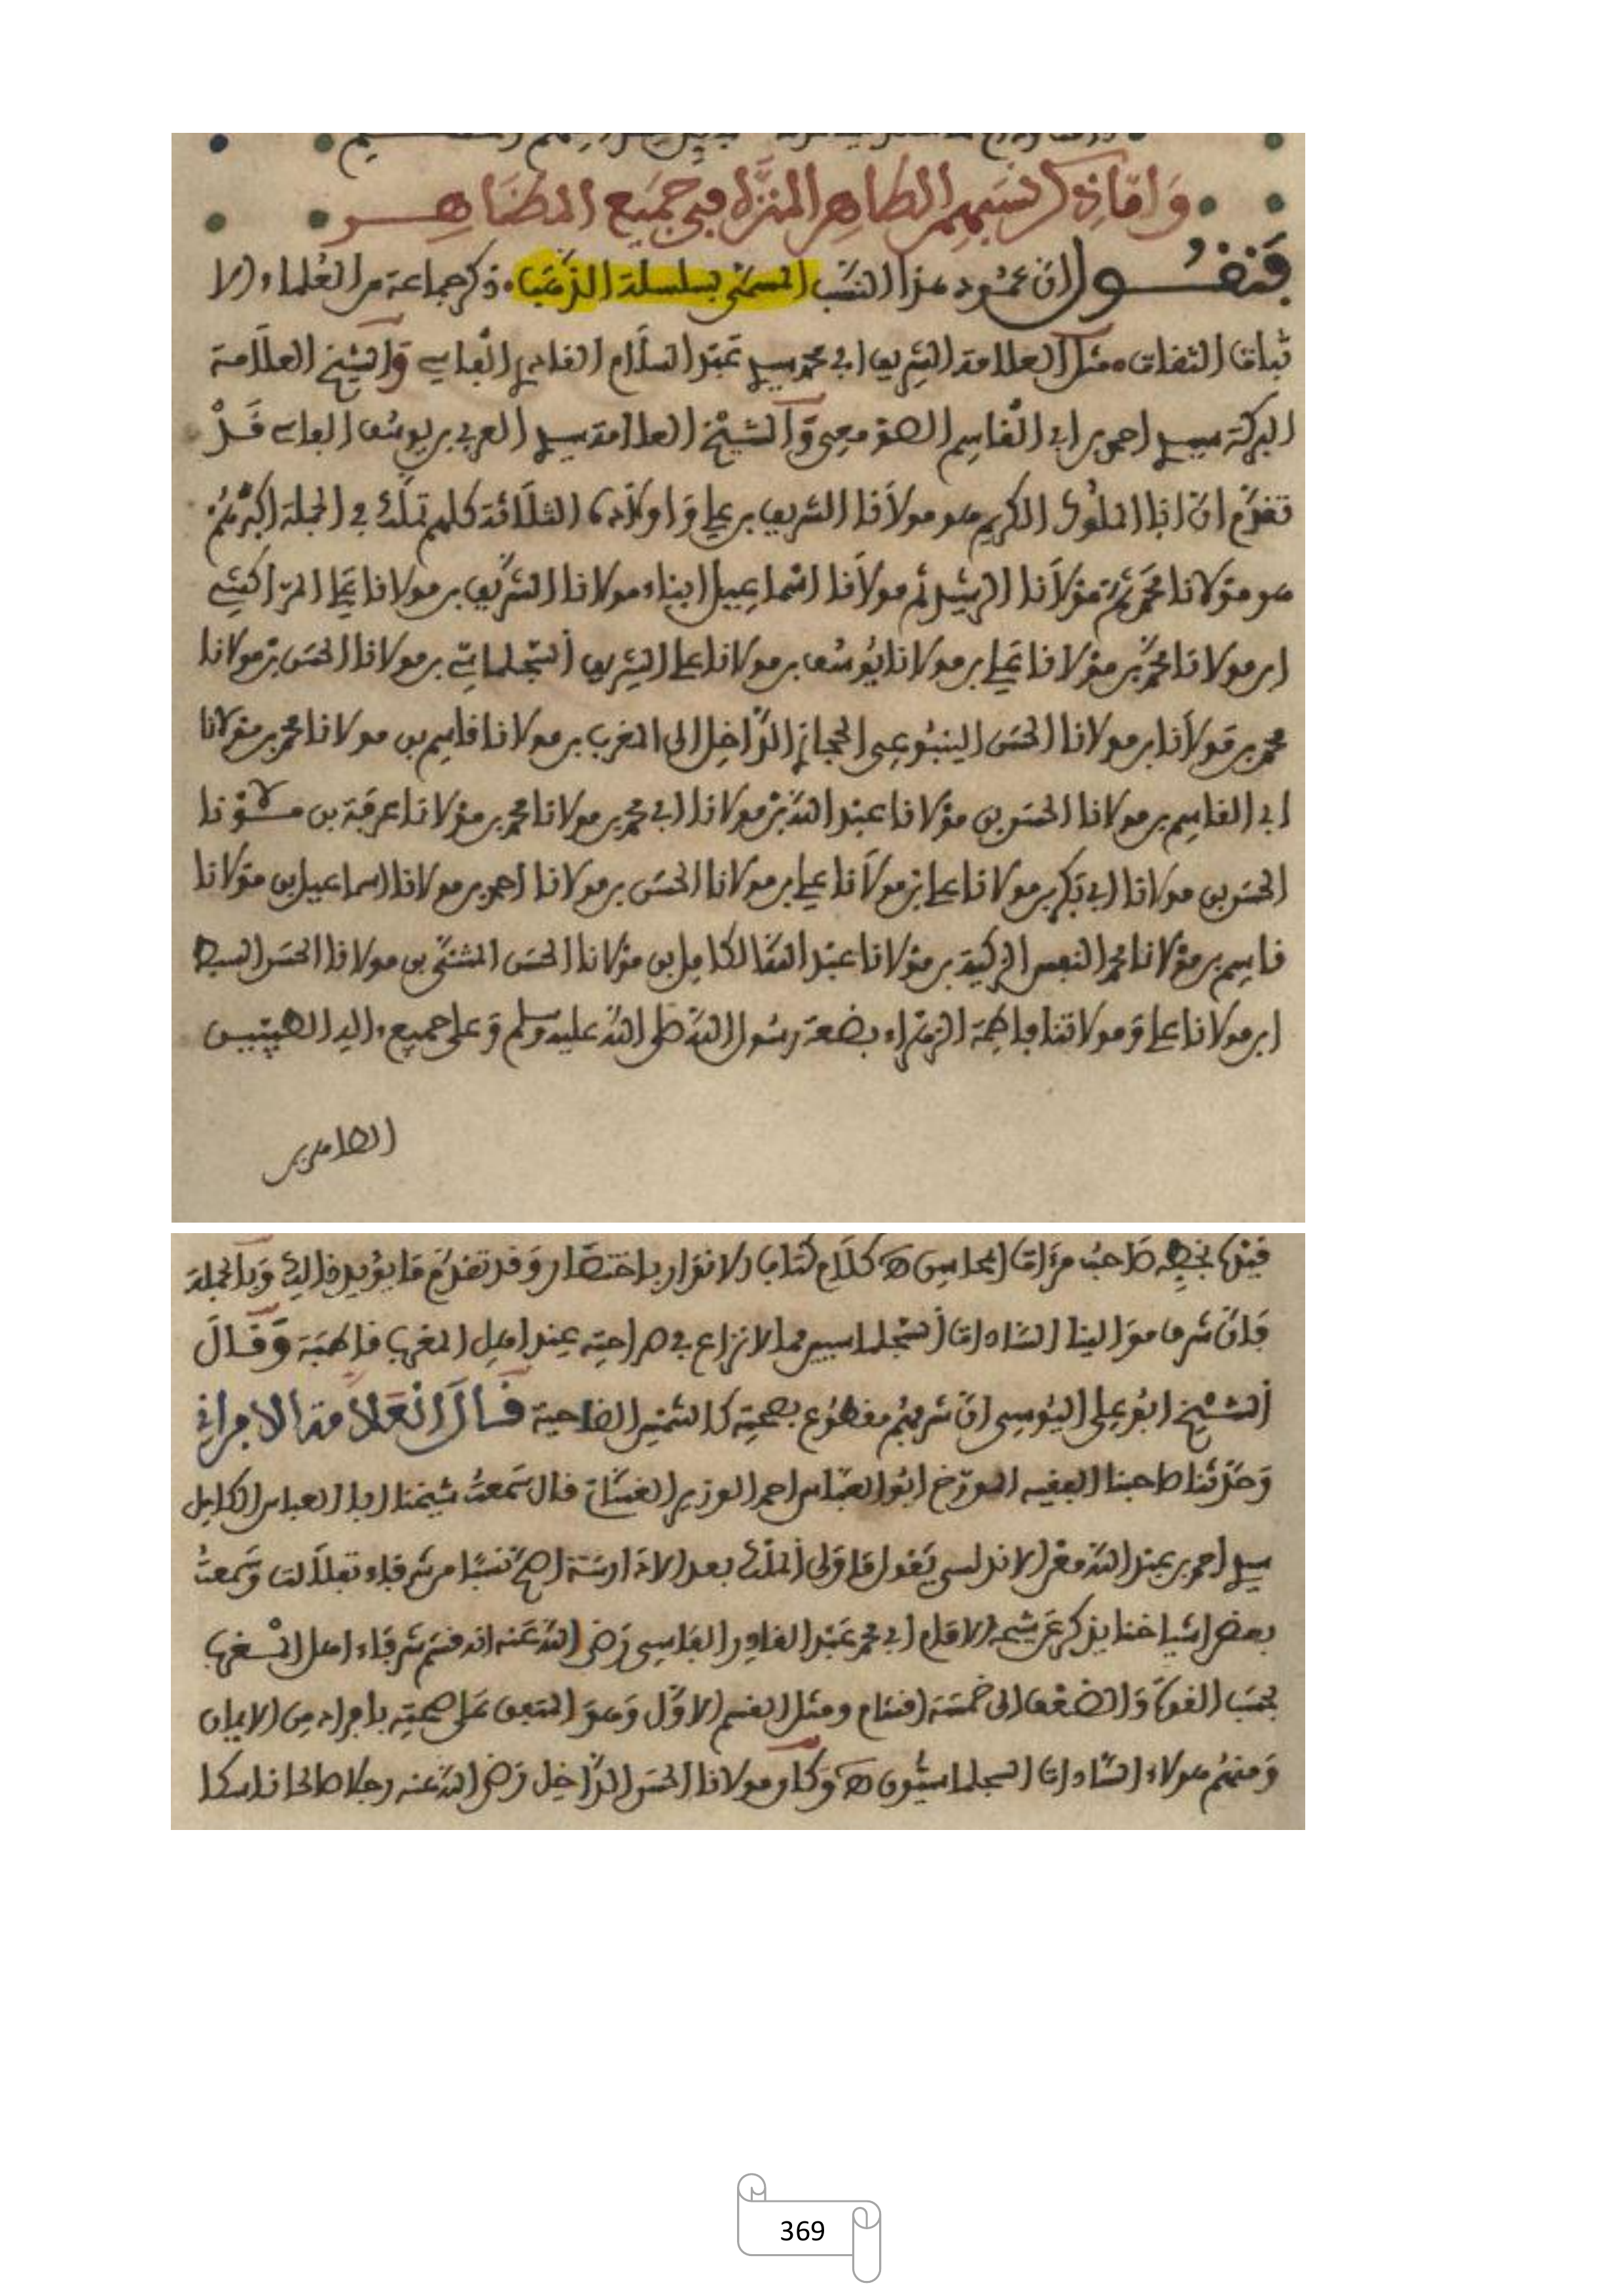 وَامّا ذِكر نسَبِهِم الطاهِر المنزَّه في جَمِيع المظَاهِـر
فَنقُـــول ان عمُود هذا النسَب المسمّى بسلسلة الذّهَب، ذكر جماعة من العُلماء الا
ثبات الثقات، مثل العلامة الشريف ابي محمد سيدي عَبْد السلَام القادري الفاسي وَالشيخ العلَامة
البركة سيدي احمد بن ابي القاسِم الصومعي وَالشيْخ العلامة سيدي العربي بن يوسُف الفاسي قَدْ
تقدّم انّ ابا الملُوك الكريم هو مولَانا الشريف بن علي وَاولَاده الثلَاثة كلهم تملّك في الجملة اكبرُهُم
هو مَولانا محمّد ثم مَولَانا الرشيد ثم مولَانا اسْماعِيل ابناء مولانا الشريف بن مولانا علي المرّاكشي
ابن مولانا محمّد بن مَولانا علي بن مولانا يُوسُف بن مولانا علي الشريف السّجلماسي بن مولانا الحسَن بن مولانا
محمد بن مَولَانا بن مولانا الحسَن الينبُوعي الحجازي الدّاخِل الى المغرب بن مولانا قاسِم بن مولانا محمد بن مَولانا
ابي القاسِم بن مولانا الحسَن بن مَولانا عبْد الله بن مولانا ابي محمد بن مولانا محمد بن مَولانا عرفَة بن مــوْلانا
الحسَن بن مولانا ابي بَكر بن مولانا علي بن مولَانا علي بن مولانا الحسَن بن مولانا احمد بن مولانا اسماعيل بن مَولانا
قاسِم بن مَولانا محمد النفس الزكية بن مَولانا عبْد الله الكامِل بن مَولانا الحسَن المثنّى بن مولانا الحسَن السبط
ابن مولانا علي وَمولاتنا فاطِمة الزهْراء بضعة رسُول الله صلى الله عليه وسلم وَعلى جميع ءاله الطيّبين
الطاهرين
بخطِه صَاحبُ مرءَات المحاسِن اهـ كلَام كتاب الانوَار باختصَار وَقد تقدّم مَا يؤيد ذالك وَبالجملة
فَانّ شرف مَوالينا السَّادات السّجلماسيين مما لا نزاع في صراحتِه عند اهل المغرب قاطبَة وَقَـالَ
الشيْخ ابُو علي اليُوسِي انّ شرفهُم مقطُوع بصحتِه كالشمْس الضاحية قَـالَ العَلَامة الافراني
وَحدّثنا صاحبنا الفقيه المؤرّخ ابُو العبَّاس احمد الوزير الغسّاني قال سَمعتُ شيخنا ابا العباس الكامِل
سيدي احمد بن عبْد الله معْن الاندلسي يَقول مَا وَلي الملْك بعد الادَارسَة اصحّ نسَبًا من شرفاء تفلَالت وَسَمعتُ
بعض اشياخنا يذكر عَن شيخه الامَام ابي محمد عَبْد القادِر الفاسي رَضي الله عَنه انه قسّم شرفاء اهل المــغرب
بحسَب القوّة وَالضعْف الى خمسَة اقسَام ومثل القسم الاوّل وَهوَ المتفق عَلى صحتِه بافراد مِن الاعيان
وَمنهُم هؤلاء السَّادات السجلماسيُّون اهـ وَكان مولانا الحسَن الدّاخِل رَضي الله عنه رجلا صالحا ناسكا
369